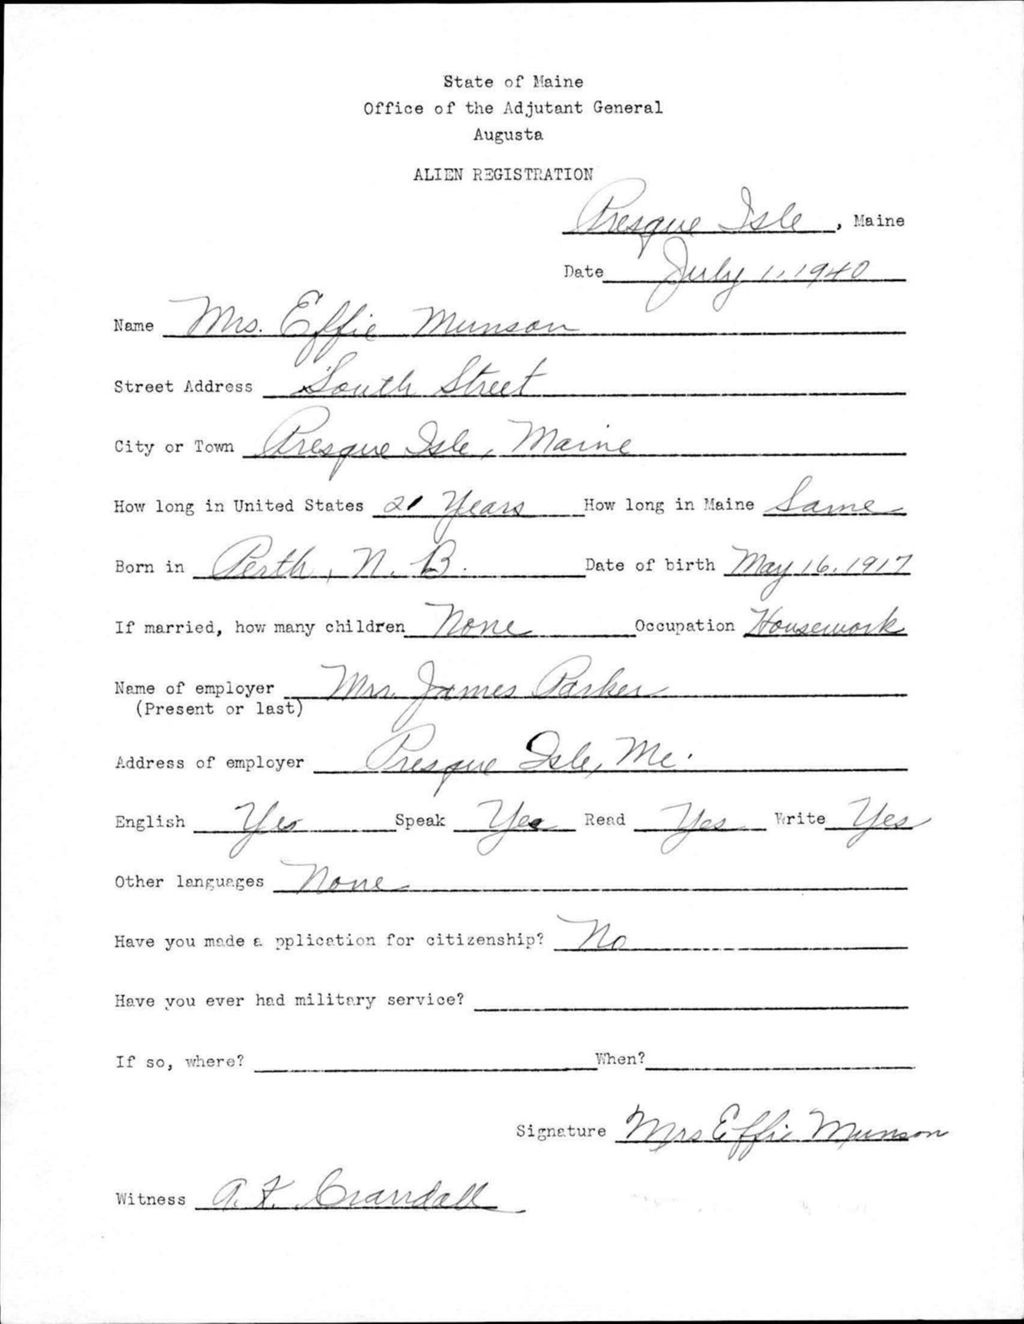 State of Maine
Office of the Adjutant General
Augusta
ALIEN REGISTRATION
Presque Isle, Maine
Date July 1, 1940
Name Mrs. Effie Munson
Street Address South Street
City or Town Presque Isle, Maine
How long in United States 21 Years How long in Maine Same
Born in Perth, N. B. Date of birth May 16, 1917
If married, how many children None Occupation Housework
Name of employer Mrs. James Parker
(Present or last)
Address of employer Presque Isle, Me.
English Yes Speak Yes Read Yes Write Yes
Other languages None
Have you made a pplication for citizenship? No
Have you ever had military service?
If so, where? When?
Signature Mrs Effie Munson
Witness A. F. Crandall